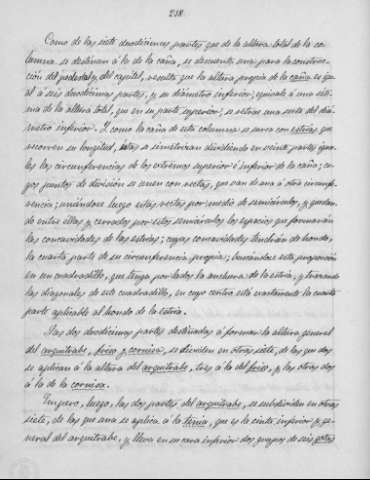 218.
Como de las siete duodécimas partes que de la altura total de la co-
lumna se destinan á la de la caña, se descuenta una para la construc-
ción del pedestal y del capitel, resulta que la altura propia de la caña es igu-
al á seis duodécimas partes, y su diámetro inferior, equivale á una séti-
ma de la altura total, que en su parte superior, se retrae una sesta del diá-
metro inferior. Y como la caña de esta columna se surca con estrías que
recorren su longitud, estas se simetrizan dividiendo en veinte partes igua-
les las circunferencias de los extremos superior é inferior de la caña; cu-
yos puntos de división se unen con rectas, que van de una á otra circunfe-
rencia; uniéndose luego estas rectas por medio de semicírculos, y quedan-
do entre ellas y cerrados por estos semicírculos los espacios que formarán
las concavidades de las estrías; cuyas concavidades tendrán de hondo,
la cuarta parte de su circunferencia propia; buscándose esta proporción
en un cuadradillo, que tenga por lados la anchura de la estría, y trazando
las diagonales de este cuadradillo, en cuyo centro está exactamente la cuarta
parte aplicable al hondo de la estría.
Las dos duodécimas partes destinadas á formar la altura general
del arquitrabe, friso y cornisa, se dividen en otras siete, de las que dos
se aplican á la altura del arquitrabe, tres á la del friso, y las otras dos
á la de la cornisa.
Empero, luego, las dos partes del arquitrabe, se subdividen en otras
siete, de las que una se aplica á la tenia, que es la cinta inferior y ge-
neral del arquitrabe, y lleva en su cara inferior dos grupos de seis gotas